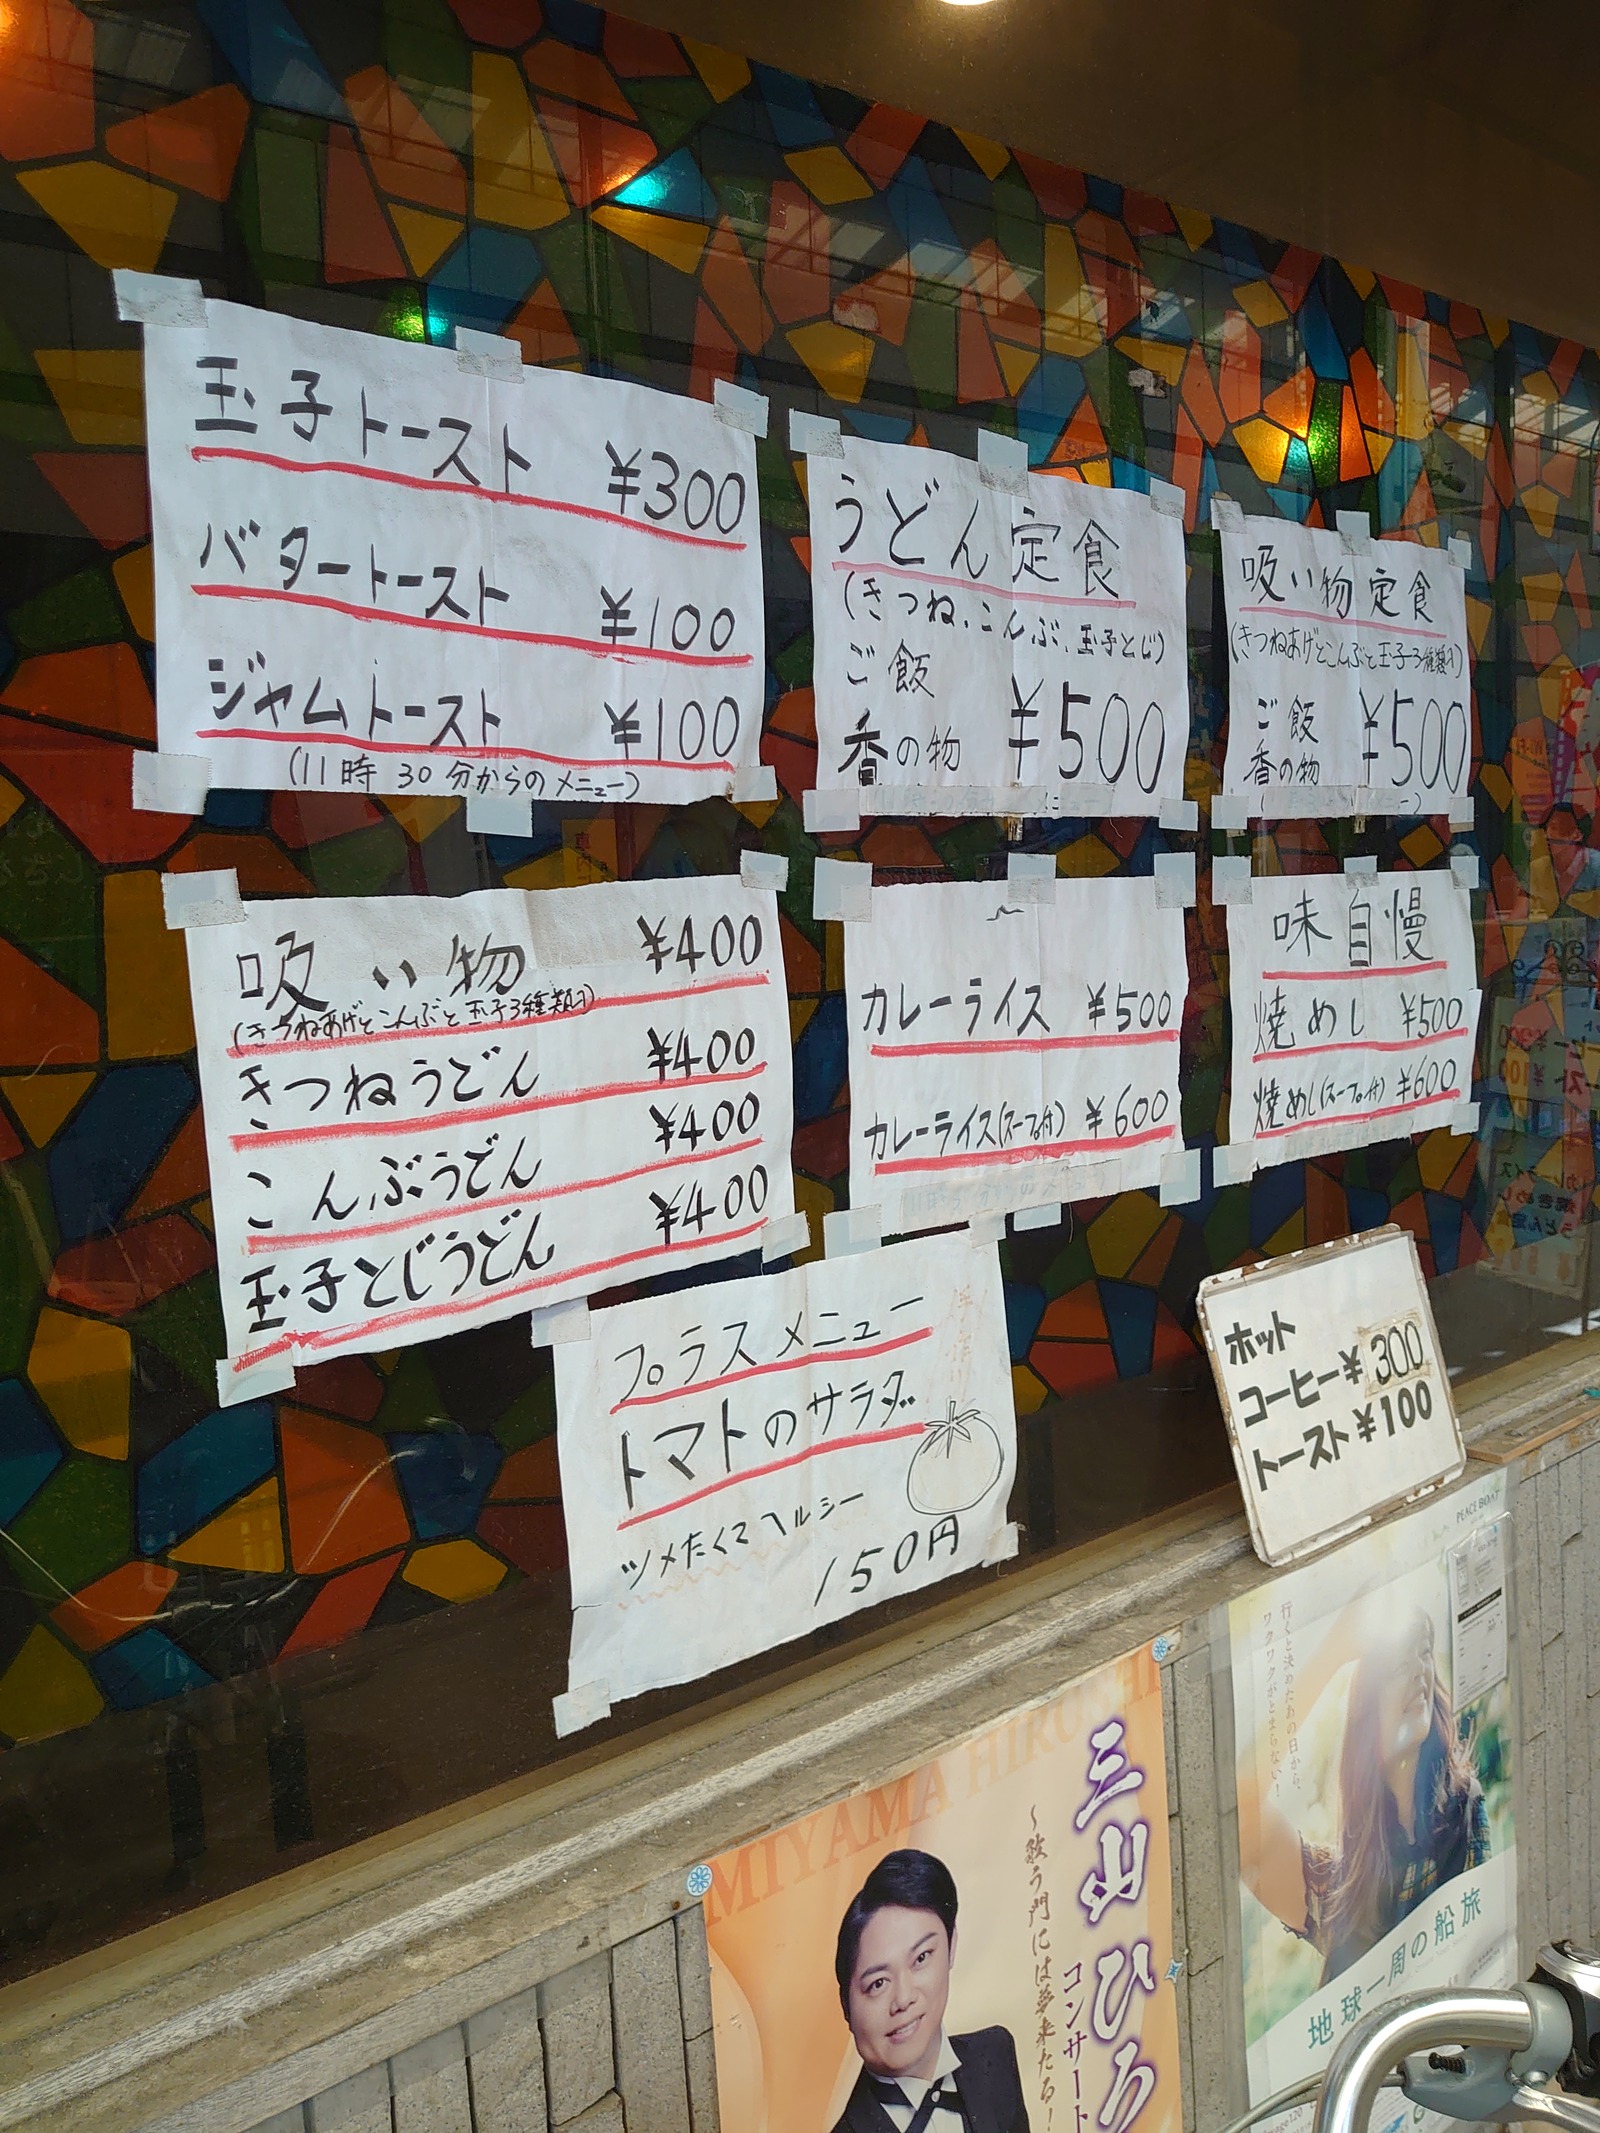 玉子トースト ¥300
バタートースト ¥100
ジャムトースト ¥100
(11時30分からのメニュー)
うどん定食
(きつね、こんぶ、玉子とじ)
ご飯
香の物 ¥500
吸い物定食
(きつねあげとこんぶと玉子3種類入)
ご飯
香の物 ¥500
吸い物 ¥400
(きつねあげとこんぶと玉子3種類入)
きつねうどん ¥400
こんぶうどん ¥400
玉子とじうどん ¥400
カレーライス ¥500
カレーライス(スープ付) ¥600
味自慢
焼めし ¥500
焼めし(スープ付) ¥600
プラスメニュー
トマトのサラダ
ツメたくてヘルシー
150円
ホット
コーヒー¥300
トースト¥100
MIYAMA HIROSHI
三山ひろ
〜歌う門には夢来たる!
コンサート
PEACE BOAT
行くと決めたあの日から、
ワクワクがとまらない!
地球一周の船旅